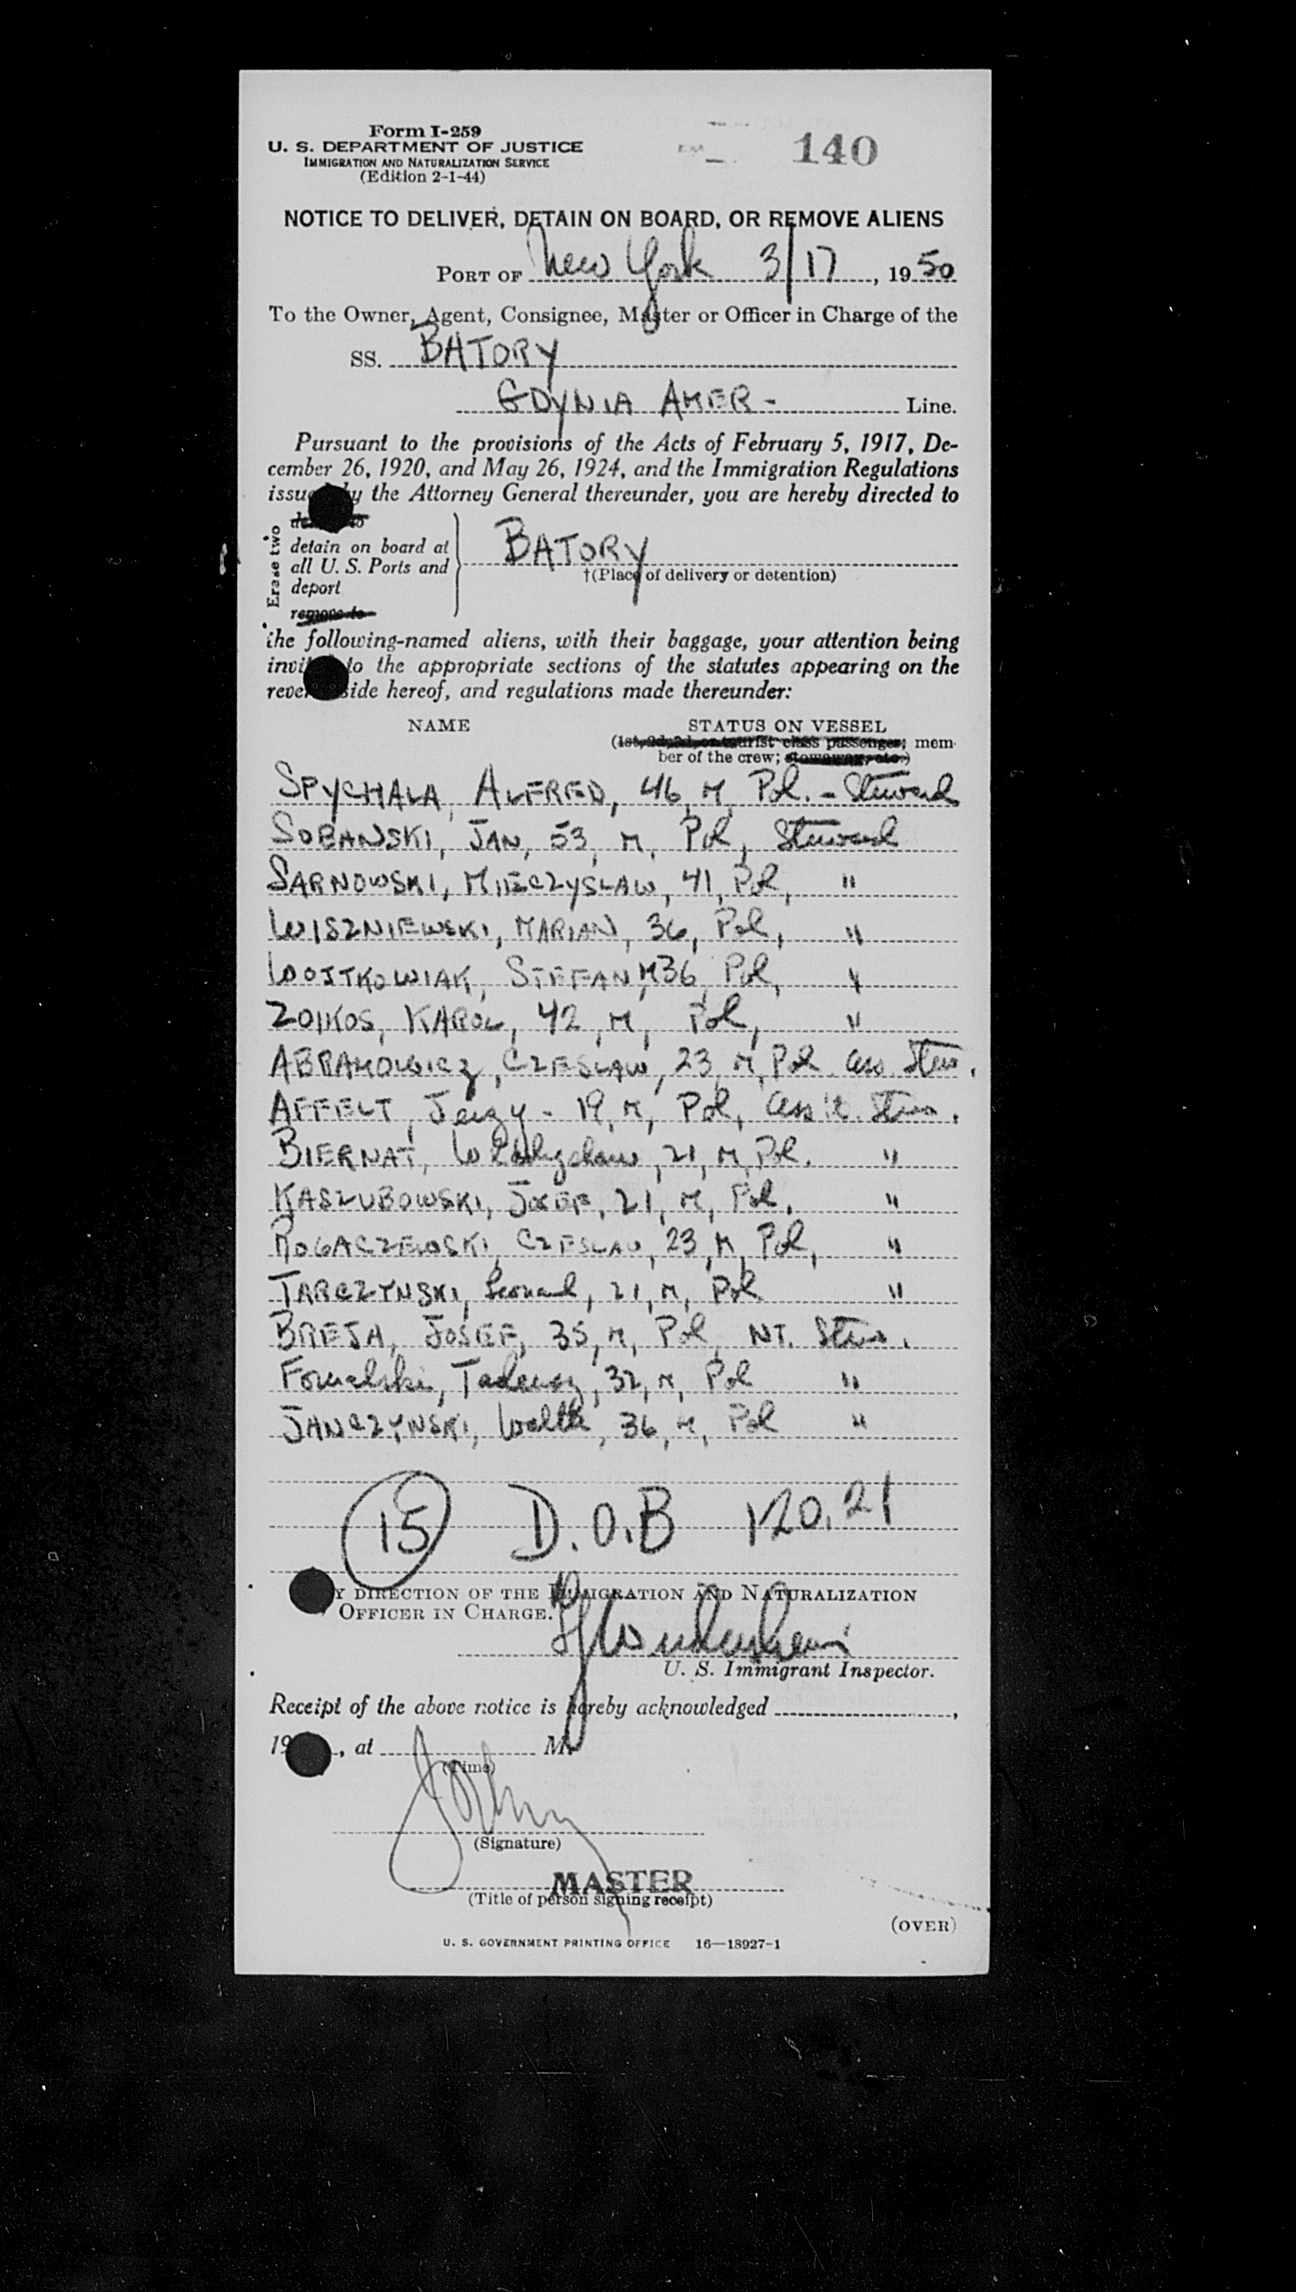 Form I-259
U. S. DEPARTMENT OF JUSTICE
IMMIGRATION AND NATURALIZATION SERVICE
(Edition 2-1-44)
140
NOTICE TO DELIVER, DETAIN ON BOARD, OR REMOVE ALIENS
PORT OF New York 3/17, 1950
To the Owner, Agent, Consignee, Master or Officer in Charge of the
SS. BATORY
GDYNIA AMER- Line.
Pursuant to the provisions of the Acts of February 5, 1917, De-
cember 26, 1920, and May 26, 1924, and the Immigration Regulations
issued by the Attorney General thereunder, you are hereby directed to
Erase two
detain on board at
all U. S. Ports and
deport
remove to
BATORY
†(Place of delivery or detention)
the following-named aliens, with their baggage, your attention being
invited to the appropriate sections of the statutes appearing on the
reverse side hereof, and regulations made thereunder:
NAME STATUS ON VESSEL
(1st, 2d, 3d, or tourist class passenger; mem-
ber of the crew; stowaway, etc.)
SPYCHALA, ALFRED, 46, M, Pol. - Steward
SOBANSKI, JAN, 53, M, Pol, Steward
SARNOWSKI, MIECZYSLAW, 41, Pol, "
WISZNIEWSKI, MARIAN, 36, Pol, "
WOJTKOWIAK, STEFAN, M 36, Pol, "
KAROL, 42, M, Pol, "
ABRAMOWICZ, CZESLAW, 23, M, Pol. ass. Stew.
AFFELT, Jerzy - 19, M, Pol, ass't. Stew.
BIERNAT, Wladyslaw, 21, M, Pol. "
KASZUBOWSKI, JOSEF, 21, M, Pol. "
ROGACZEWSKI, CZESLAW, 23, M, Pol, "
TARCZYNSKI, Leonard, 21, M, Pol "
BREJA, JOSEF, 35, M, Pol, NT. Stew.
Tadeusz, 32, M, Pol "
JANCZYNSKI, 36, M, Pol "
15 D.O.B 120.21
BY DIRECTION OF THE IMMIGRATION AND NATURALIZATION
OFFICER IN CHARGE.
U. S. Immigrant Inspector.
Receipt of the above notice is hereby acknowledged,
19, at M.
(Time)
(Signature)
MASTER
(Title of person signing receipt)
(OVER)
U. S. GOVERNMENT PRINTING OFFICE 16—18927-1